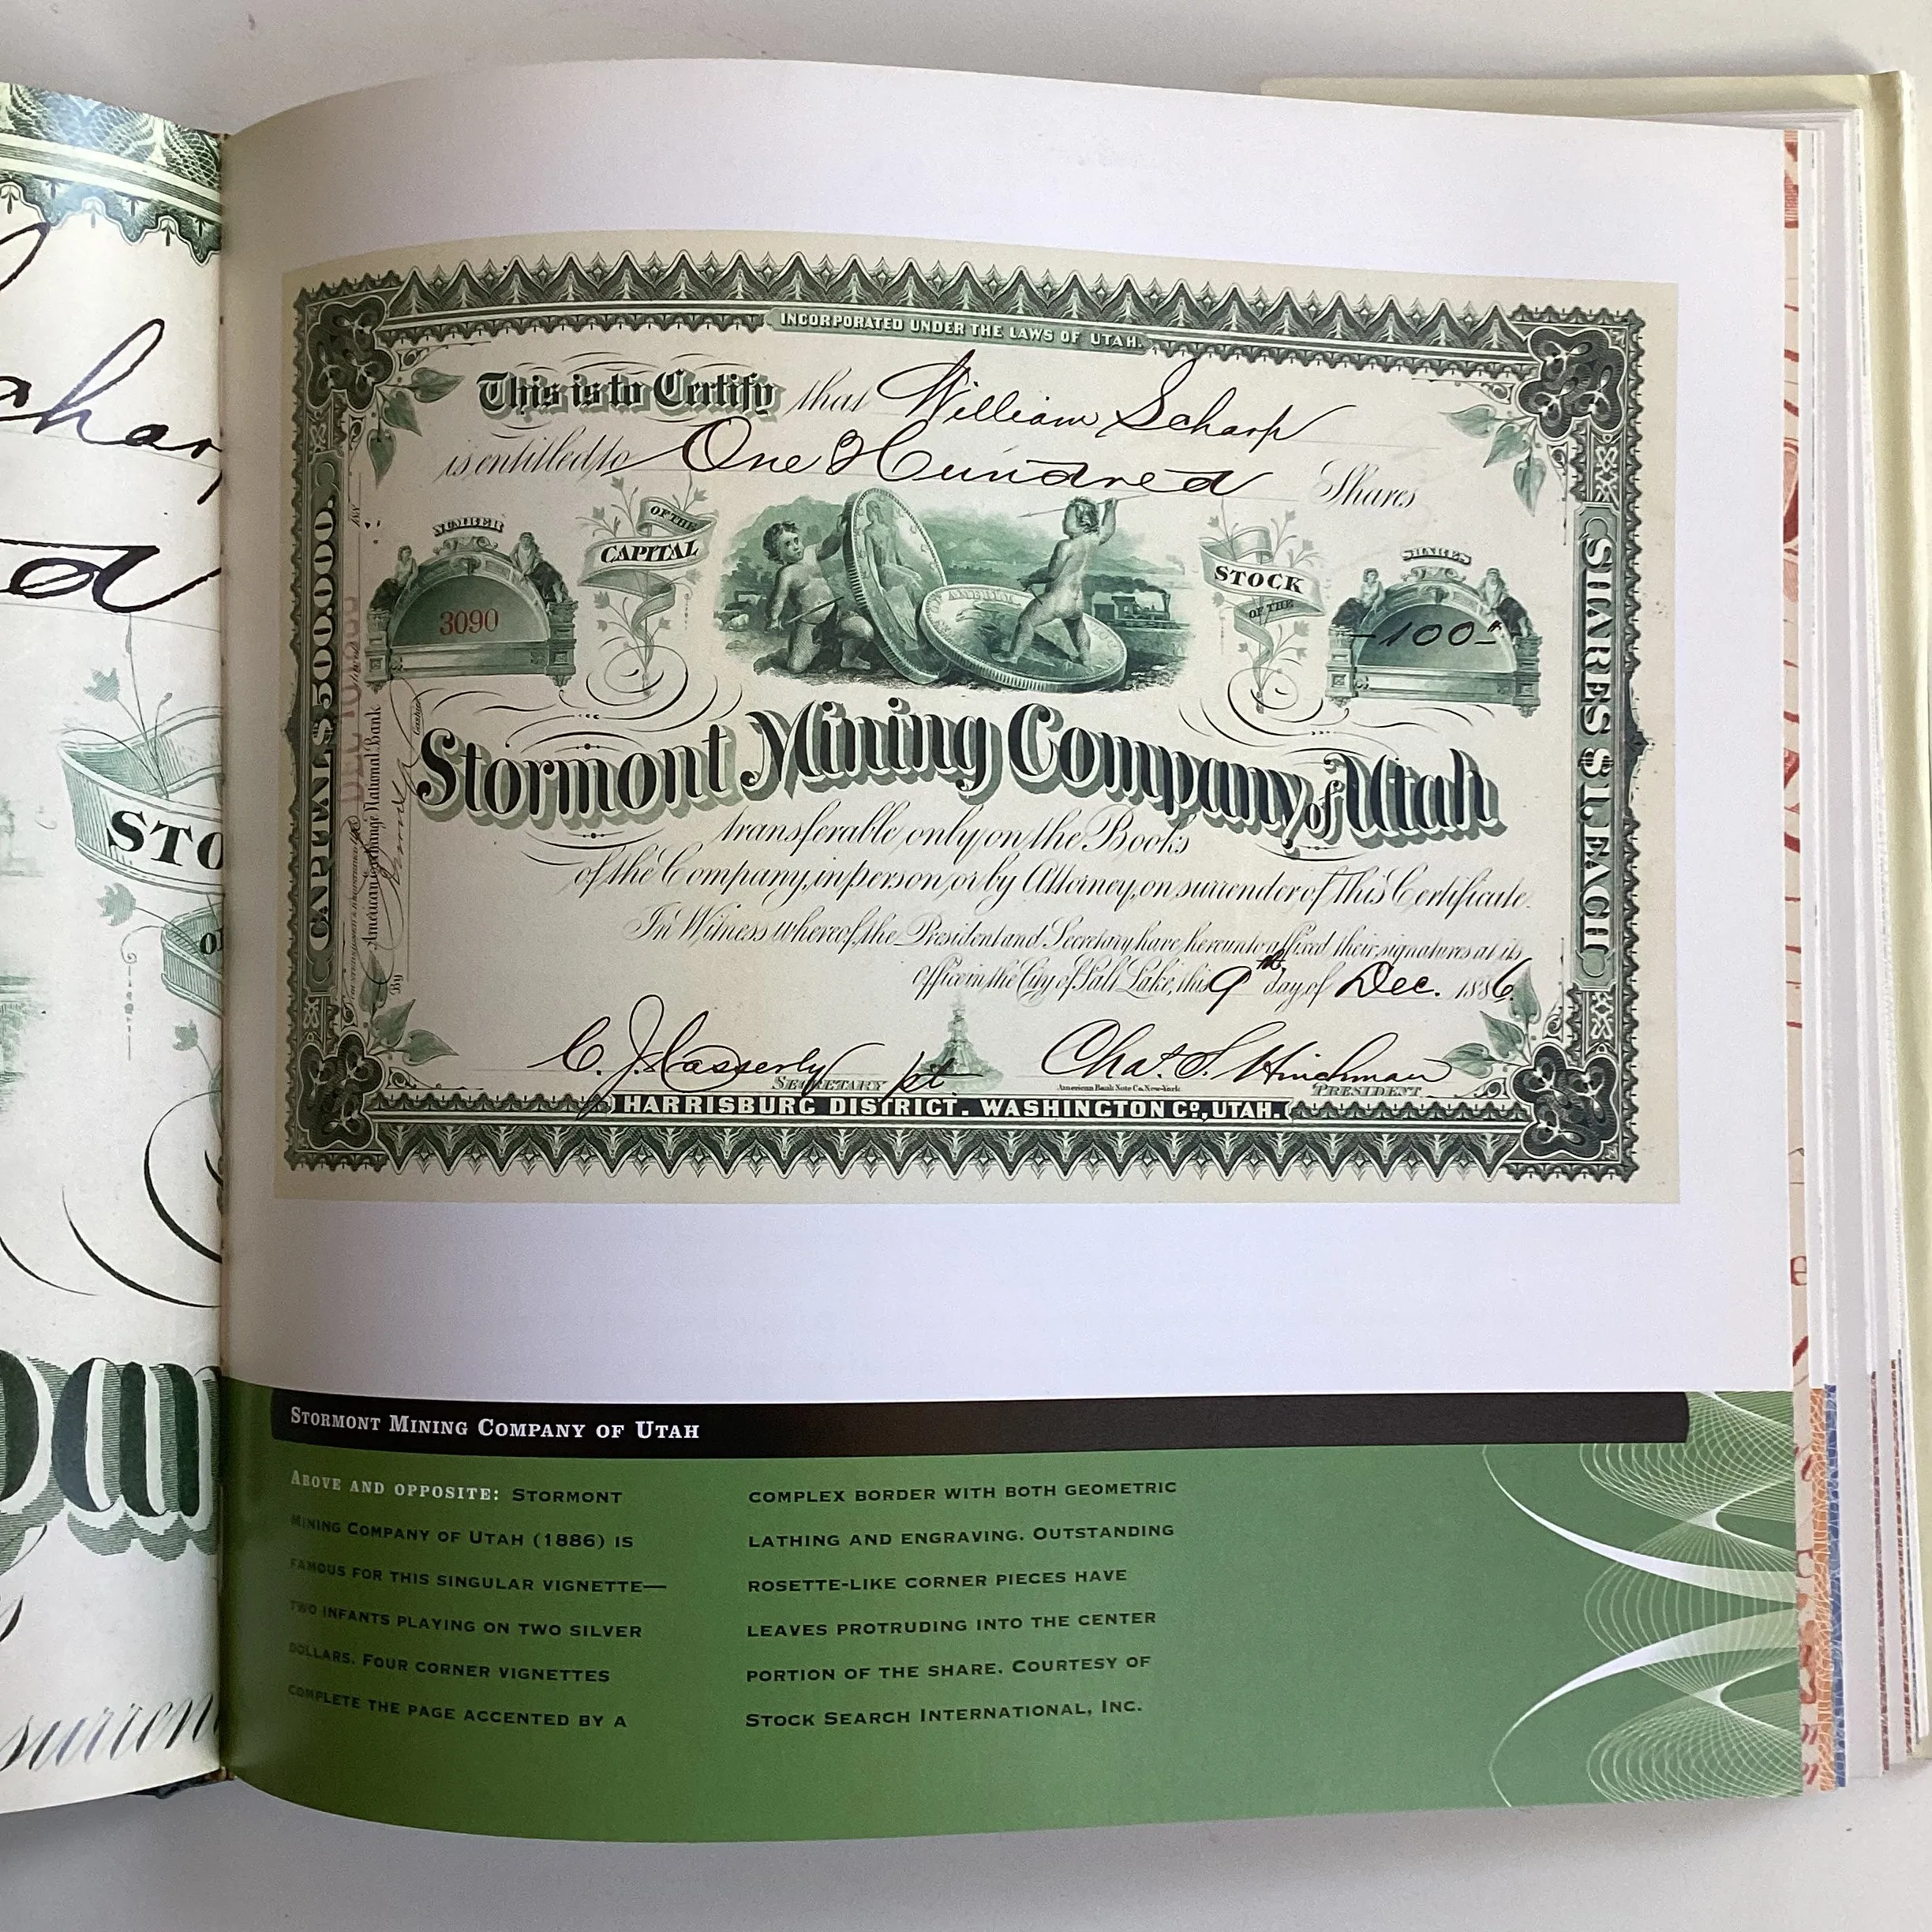 INCORPORATED UNDER THE LAWS OF UTAH.
This is to Certify that William Scharp
is entitled to One Hundred Shares
NUMBER
3090
OF THE
CAPITAL
STOCK
OF THE
SHARES
-100-
CAPITAL $500.000.
SHARES $1. EACH
American Exchange National Bank
By
Cashier
Stormont Mining Company of Utah
transferable only on the Books
of the Company, in person, or by Attorney, on surrender of this Certificate.
In Witness whereof, the President and Secretary have hereunto affixed their signatures at its
Office in the City of Salt Lake, this 9th day of Dec. 1886.
C. J. Casserly
SECRETARY
pt
Chas. S. Hinchman
PRESIDENT
American Bank Note Co. New-York
HARRISBURG DISTRICT. WASHINGTON Co., UTAH.
STORMONT MINING COMPANY OF UTAH
ABOVE AND OPPOSITE: STORMONT
MINING COMPANY OF UTAH (1886) IS
FAMOUS FOR THIS SINGULAR VIGNETTE—
TWO INFANTS PLAYING ON TWO SILVER
DOLLARS. FOUR CORNER VIGNETTES
COMPLETE THE PAGE ACCENTED BY A
COMPLEX BORDER WITH BOTH GEOMETRIC
LATHING AND ENGRAVING. OUTSTANDING
ROSETTE-LIKE CORNER PIECES HAVE
LEAVES PROTRUDING INTO THE CENTER
PORTION OF THE SHARE. COURTESY OF
STOCK SEARCH INTERNATIONAL, INC.